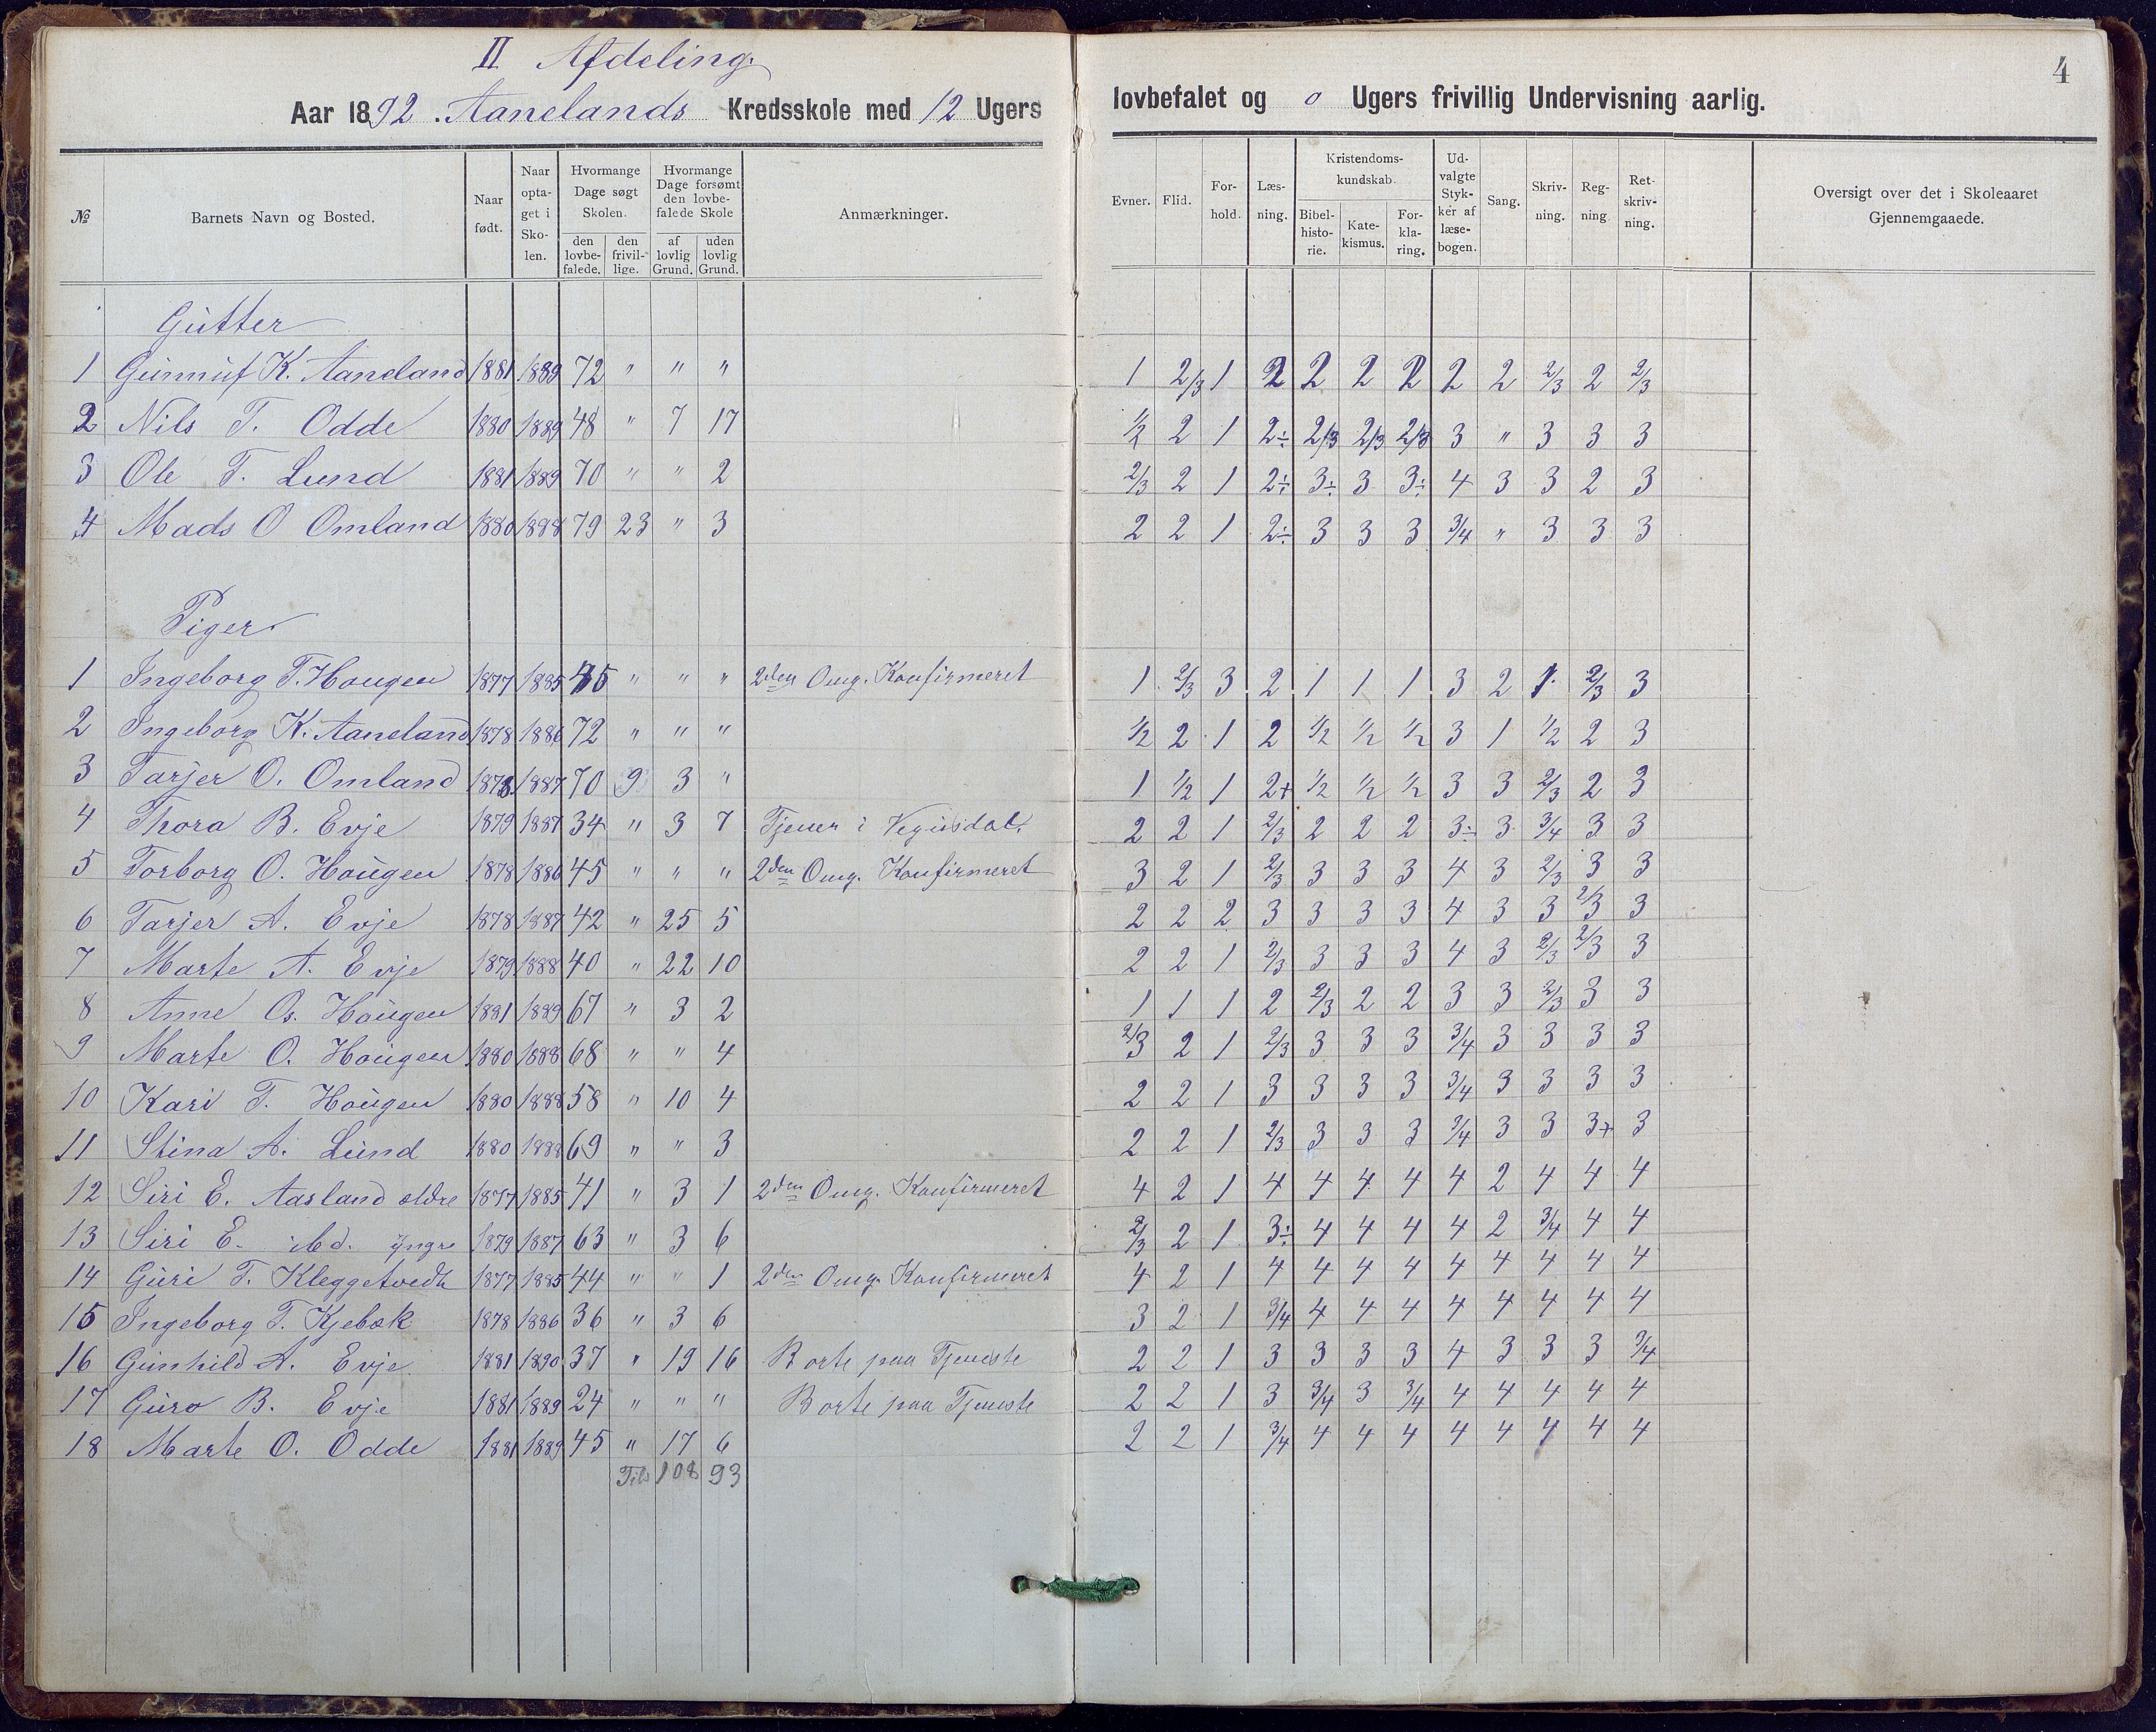 II Afdeling.
Aar 1892. Aanelands Kredsskole med 12 Ugers lovbefalet og 0 Ugers frivillig Undervisning aarlig.
4
№ | Barnets Navn og Bosted. | Naar født. | Naar optaget i Skolen. | Hvormange Dage søgt Skolen. den lovbefalede. | den frivillige. | Hvormange Dage forsømt den lovbefalede Skole af lovlig Grund. | uden lovlig Grund. | Anmærkninger. | Evner. | Flid. | Forhold. | Læsning. | Kristendomskundskab. Bibelhistorie. | Katekismus. | Forklaring. | Udvalgte Stykker af læsebogen. | Sang. | Skrivning. | Regning | Retskrivning. | Oversigt over det i Skoleaaret Gjennemgaaede.
Gutter
1 Gunnuf K. Aaneland 1881 1889 72 " " " 1 2/3 1 2 2 2 2 2 2 2/3 2 2/3
2 Nils T. Odde 1880 1889 48 " 7 17 1/2 2 1 2÷ 2/3 2/3 2/3 3 " 3 3 3
3 Ole T. Lund 1881 1889 70 " " 2 2/3 2 1 2÷ 3÷ 3 3÷ 4 3 3 2 3
4 Mads O Omland 1880 1888 79 23 " 3 2 2 1 2÷ 3 3 3 3/4 " 3 3 3
Piger
1 Ingeborg T. Hougen 1877 1885 45 " " " 2den Omg. Konfirmeret 1 2/3 3 2 1 1 1 3 2 1 2/3 3
2 Ingeborg K. Aaneland 1878 1886 72 " " " 1/2 2 1 2 1/2 1/2 1/2 3 1 1/2 2 3
3 Tarjer O. Omland 1878 1887 70 9 3 " 1 1/2 1 2+ 1/2 1/2 1/2 3 3 2/3 2 3
4 Thora B. Evje 1879 1887 34 " 3 7 Tjener i Vegusdal. 2 2 1 2/3 2 2 2 3÷ 3 3/4 3 3
5 Torborg O. Hougen 1878 1886 45 " " " 2den Omg. Konfirmeret 3 2 1 2/3 3 3 3 4 3 2/3 3 3
6 Tarjer A. Evje 1878 1887 42 " 25 5 2 2 2 3 3 3 3 4 3 3 2/3 3
7 Marte A. Evje 1879 1888 40 " 22 10 2 2 1 2/3 3 3 3 4 3 2/3 2/3 3
8 Anne Os. Hougen 1881 1889 67 " 3 2 1 1 1 2 2/3 2 2 3 3 2/3 3 3
9 Marte O. Hougen 1880 1888 68 " " 4 2/3 2 1 2/3 3 3 3 3/4 3 3 3 3
10 Kari T. Hougen 1880 1888 58 " 10 4 2 2 1 3 3 3 3 3/4 3 3 3 3
11 Stina A. Lund 1880 1888 69 " " 3 2 2 1 2/3 3 3 3 3/4 3 3 3+ 3
12 Siri E. Aasland ældre 1877 1885 41 " 3 1 2den Omg. Konfirmeret 4 2 1 4 4 4 4 4 2 4 4 4
13 Siri E. ibd. yngre 1879 1887 63 " 3 6 2/3 2 1 3÷ 4 4 4 4 2 3/4 4 4
14 Guri T. Kleggetvedt 1877 1885 44 " " 1 2den Omg. Konfirmeret 4 2 1 4 4 4 4 4 4 4 4 4
15 Ingeborg T. Kjebæk 1878 1886 36 " 3 6 3 2 1 3/4 4 4 4 4 4 4 4 4
16 Gunhild A. Evje 1881 1890 37 " 19 16 Borte paa Tjeneste 2 2 1 3 3 3 3 4 3 3 3 3/4
17 Guro B. Evje 1881 1889 24 " " " Borte paa Tjeneste 2 2 1 3 3/4 3 3/4 4 4 4 4 4
18 Marte O. Odde 1881 1889 45 " 17 6 2 2 1 3/4 4 4 4 4 4 4 4 4
Tils 108 93